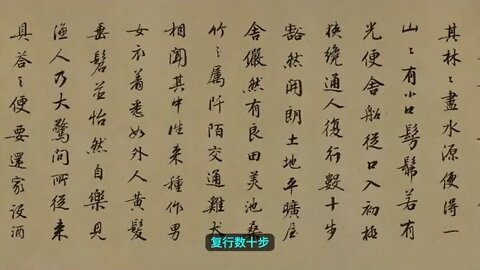 其林〻盡水源便得一
山〻有小口髣髴若有
光便舍船從口入初極
狹纔通人復行數十步
豁然開朗土地平曠屋
舍儼然有良田美池桑
竹之屬阡陌交通雞犬
相聞其中往来種作男
女衣着悉如外人黃髮
垂髫並怡然自樂見
漁人乃大驚問所從来
具答之便要還家設酒
复行数十步